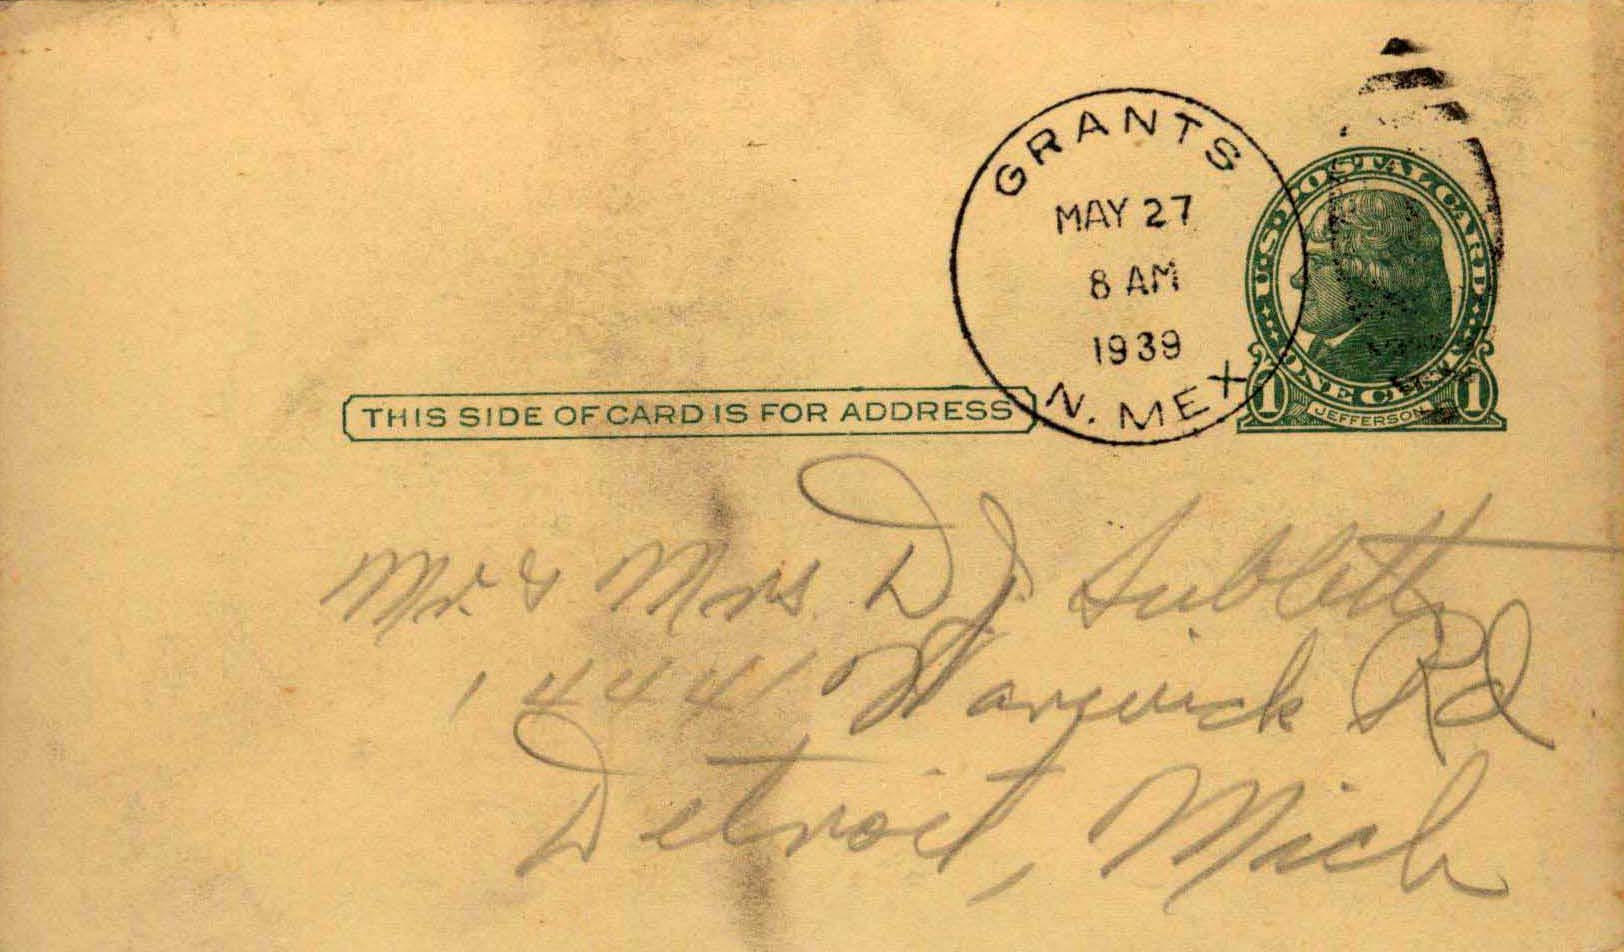 GRANTS
MAY 27
8 AM
1939
N. MEX
U.S. POSTAL CARD
ONE CENT
1 JEFFERSON 1
THIS SIDE OF CARD IS FOR ADDRESS
Mr. & Mrs. D. J. Sublett
14441 Warwick Rd
Detroit, Mich